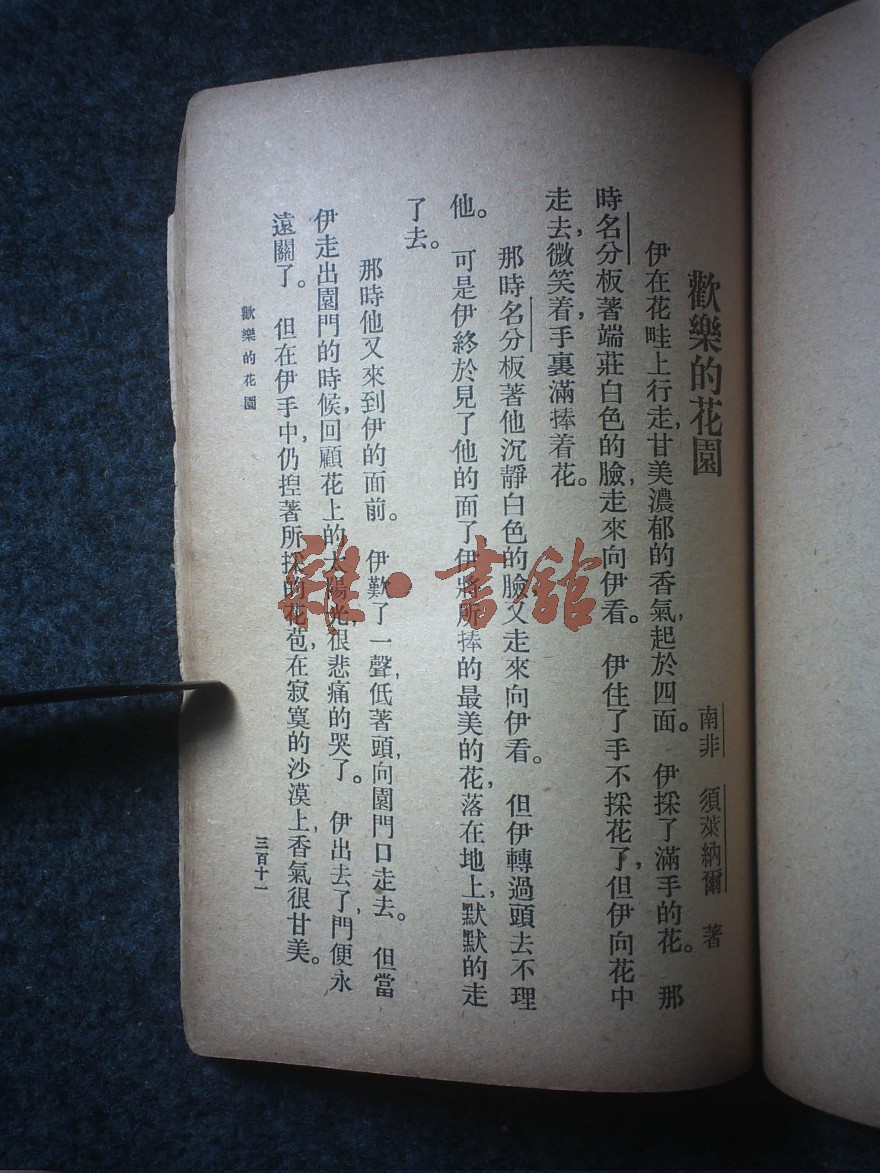 歡樂的花園
南非　須萊納爾　著
伊在花畦上行走，甘美濃郁的香氣，起於四面。　伊採了滿手的花。　那
時名分板著端莊白色的臉，走來向伊看。　伊住了手不採花了，但伊向花中
走去，微笑着，手裏滿捧着花。
那時名分板著他沉靜白色的臉，又走來向伊看。　但伊轉過頭去不理
他。　可是伊終於見了他的面了，伊將所捧的最美的花，落在地上，默默的走
了去。
那時他又來到伊的面前。　伊歎了一聲，低著頭，向園門口走去。　但當
伊走出園門的時候，回顧花上的太陽光，很悲痛的哭了。　伊出去了，門便永
遠關了。　但在伊手中，仍揑著所採的花苞，在寂寞的沙漠上，香氣很甘美。
歡樂的花園
三百十一
雜·書館